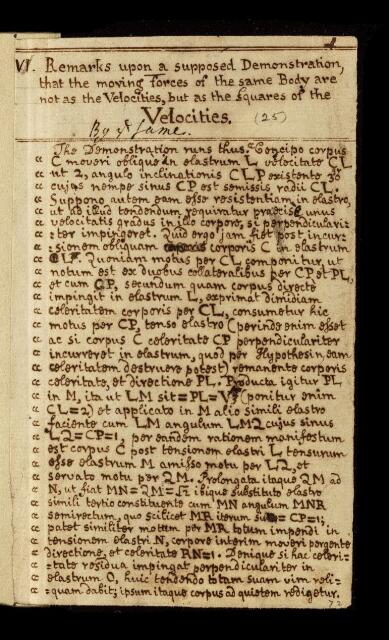 VI. Remarks upon a supposed Demonstration,
that the moving forces of the same Body are
not as the Velocities, but as the Squares of the
Velocities. (25)
By ye Same.
The Demonstration runs thus. Concipo corpus
« C moveri oblique in elastrum L velocitate CL
« ut 2, angulo inclinationis CLP existente 30
« cujus nempe sinus CP est semissis radii CL.
« Suppono autem eam esse resistentiam in elastro,
« ut ad illud tendendum requiratur præcise unus
« velocitatis gradus in illo corpore, si perpendiculari=
« =ter impingeret. Quid ergo jam fiet post incur=
« =sionem obliquam corporis C in elastrum
« L. Quoniam motus per CL componitur, ut
« notum est ex duobus collateralibus per CP et PL,
« et cum CP, secundum quam corpus directe
« impingit in elastrum L, exprimat dimidiam
« celeritatem corporis per CL, consumetur hic
« motus per CP, tenso elastro (perinde enim esset
« ac si corpus C celeritate CP perpendiculariter
« incurreret in elastrum, quod per Hypothesin, eam
« celeritatem destruere potest) remanente corporis
« celeritate, et directione PL. Producta igitur PL
« in M, ita ut LM sit = PL = √3 (ponitur enim
« CL = 2) et applicato in M alio simili elastro
« faciente cum LM angulum LMQ cujus sinus
« LQ = CP = 1, per eandem rationem manifestum
« est corpus C post tensionem elastri L tensurum
« esse elastrum M amisso motu per LQ, et
« servato motu per QM. Prolongata itaque QM ad
« N, ut fiat MN = QM = √2 ibique substituto elastro
« simili tertio constituente cum MN angulum MNR
« semirectum, quo scilicet MR iterum = CP = 1;
« patet similiter motum per MR totum impendi in
« tensionem elastri N, corpore interim moveri pergente
« directione, et celeritate RN = 1. Denique si hac celeri=
« =tate residua impingat perpendiculariter in
« elastrum O, huic tendendo totam suam vim reli=
« =quam dabit; ipsum itaque corpus ad quietem redigetur.